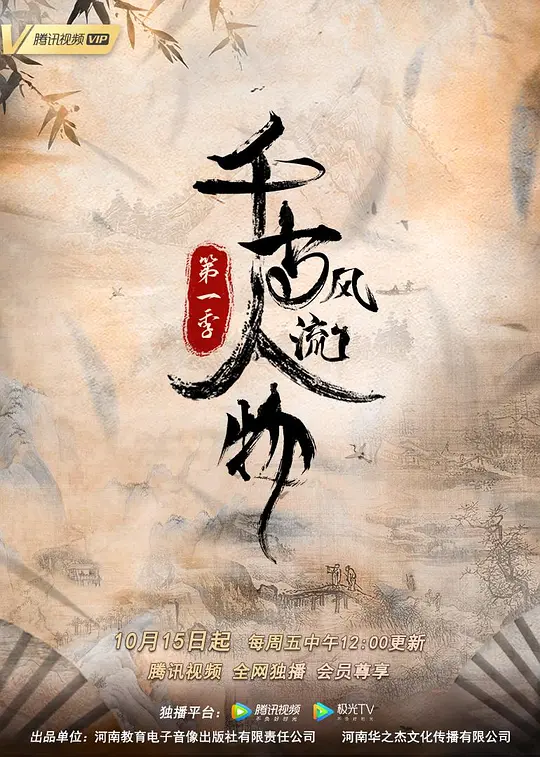 腾讯视频 VIP
千古风流人物
第一季
10月15日起 每周五中午12:00更新
腾讯视频 全网独播 会员尊享
独播平台: 腾讯视频 不负好时光 极光TV 不负好时光
出品单位: 河南教育电子音像出版社有限责任公司 河南华之杰文化传播有限公司